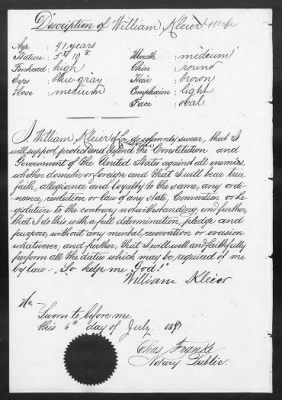 Description of William Kleier
Age 41 years Mouth medium
Stature 5 ft 10 in Chin round
Forehead high Hair brown
Eyes blue gray Complexion light
Nose medium Face oval
I William Kleier do solemnly swear, that I
will support, protect and defend the Constitution and
Government of the United States against all enemies,
whether domestic or foreign and that I will bear true
faith, allegiance and loyalty to the same, any ordi-
nance, resolution or law of any State, Convention or Le-
gislature to the contrary notwithstanding, and further
that I do this with a full determination, pledge and
purpose, without any mental reservation or evasion
whatsoever, and further, that I will well and faithfully
perform all the duties which may be required of me
by law: So help me God!"
William Kleier
Sworn to before me
this 6th day of July
Notary Public.